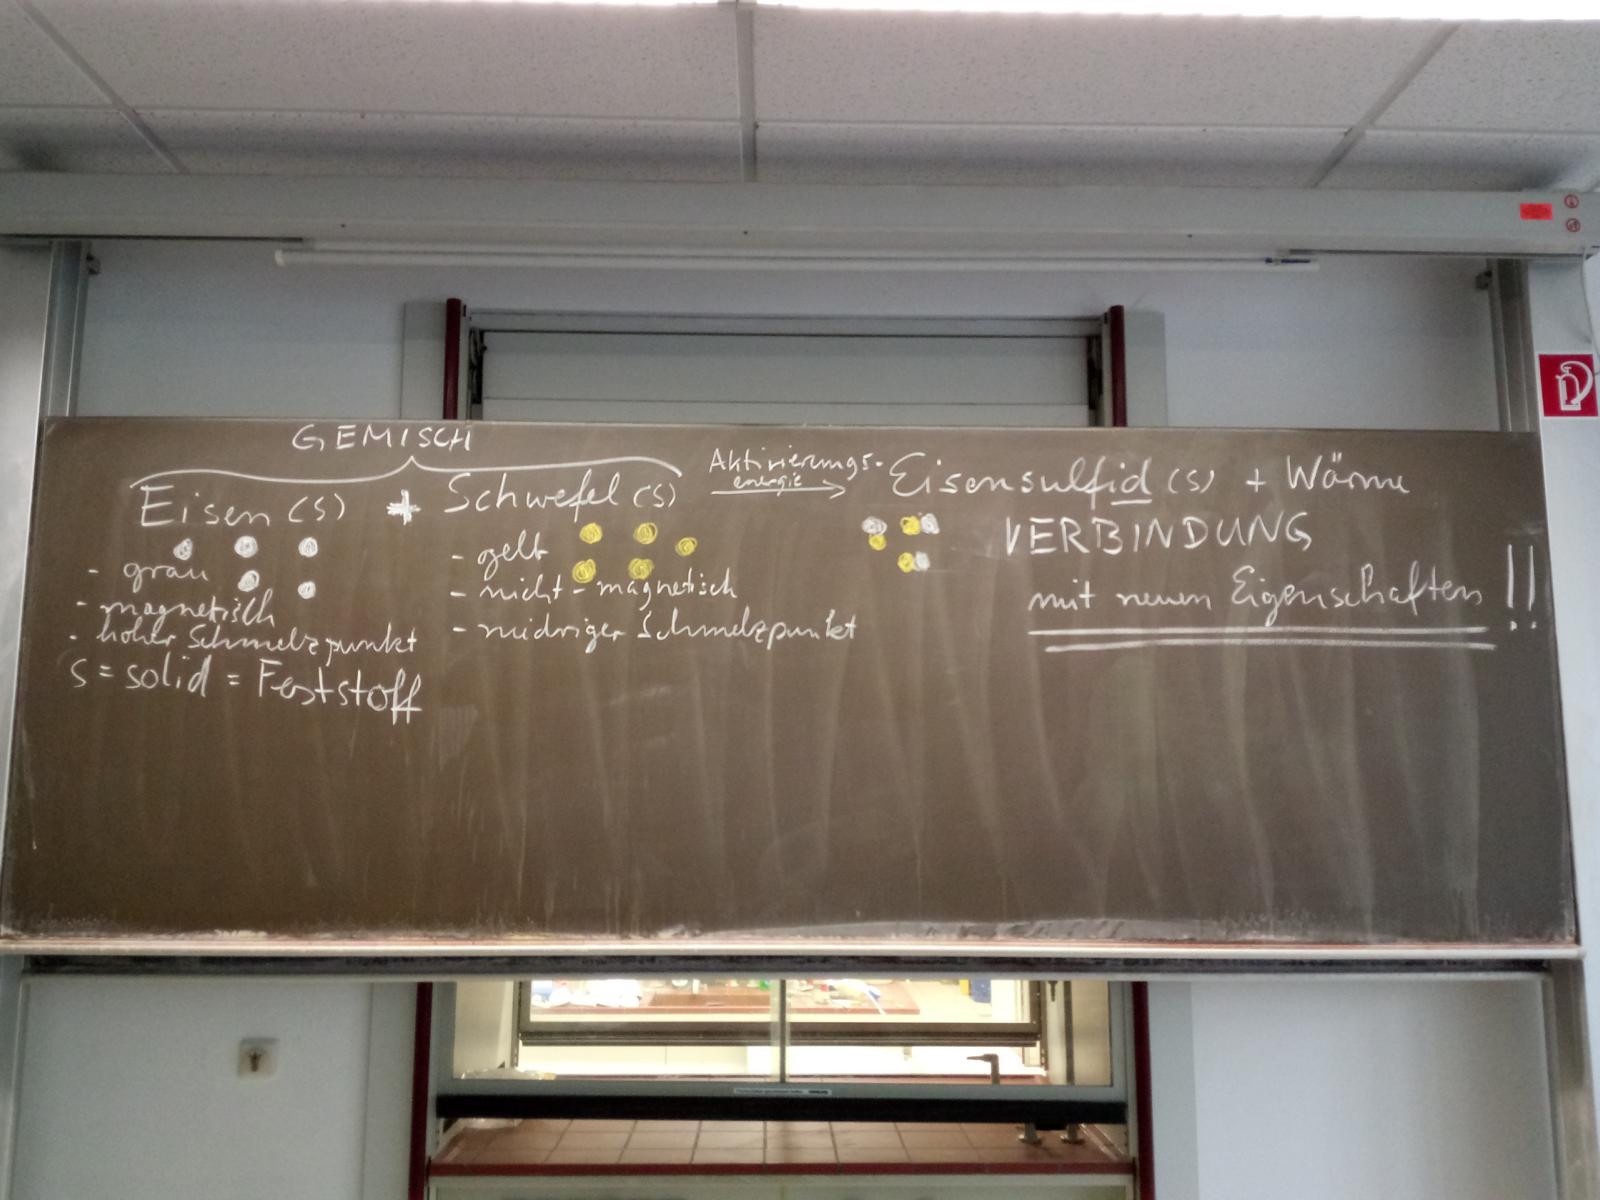 GEMISCH
Eisen (s) + Schwefel (s) Aktivierungs-energie → Eisensulfid (s) + Wärme
VERBINDUNG
mit neuen Eigenschaften !!
- grau
- magnetisch
- hoher Schmelzpunkt
- gelb
- nicht-magnetisch
- nidriger Schmelzpunkt
s = solid = Feststoff